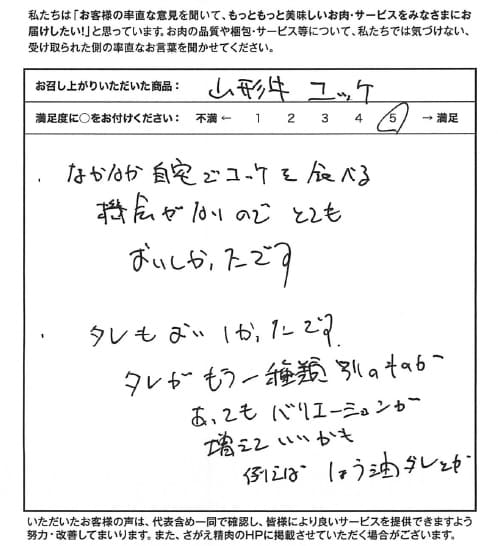 私たちは「お客様の率直な意見を聞いて、もっともっと美味しいお肉・サービスをみなさまにお
届けしたい!」と思っています。お肉の品質や梱包・サービス等について、私たちでは気づけない、
受け取られた側の率直なお言葉を聞かせてください。
お召し上がりいただいた商品: 山形牛 ユッケ
満足度に○をお付けください: 不満 ← 1 2 3 4 5 → 満足
・なかなか自宅でユッケを食べる
機会がないのでとても
おいしかったです
・タレもおいしかったです。
タレがもう一種類別のものが
あってもバリエーションが
増えていいかも
例えばしょう油タレとか
いただいたお客様の声は、代表含め一同で確認し、皆様により良いサービスを提供できますよう
努力・改善してまいります。また、さがえ精肉のHPに掲載させていただく場合がございます。